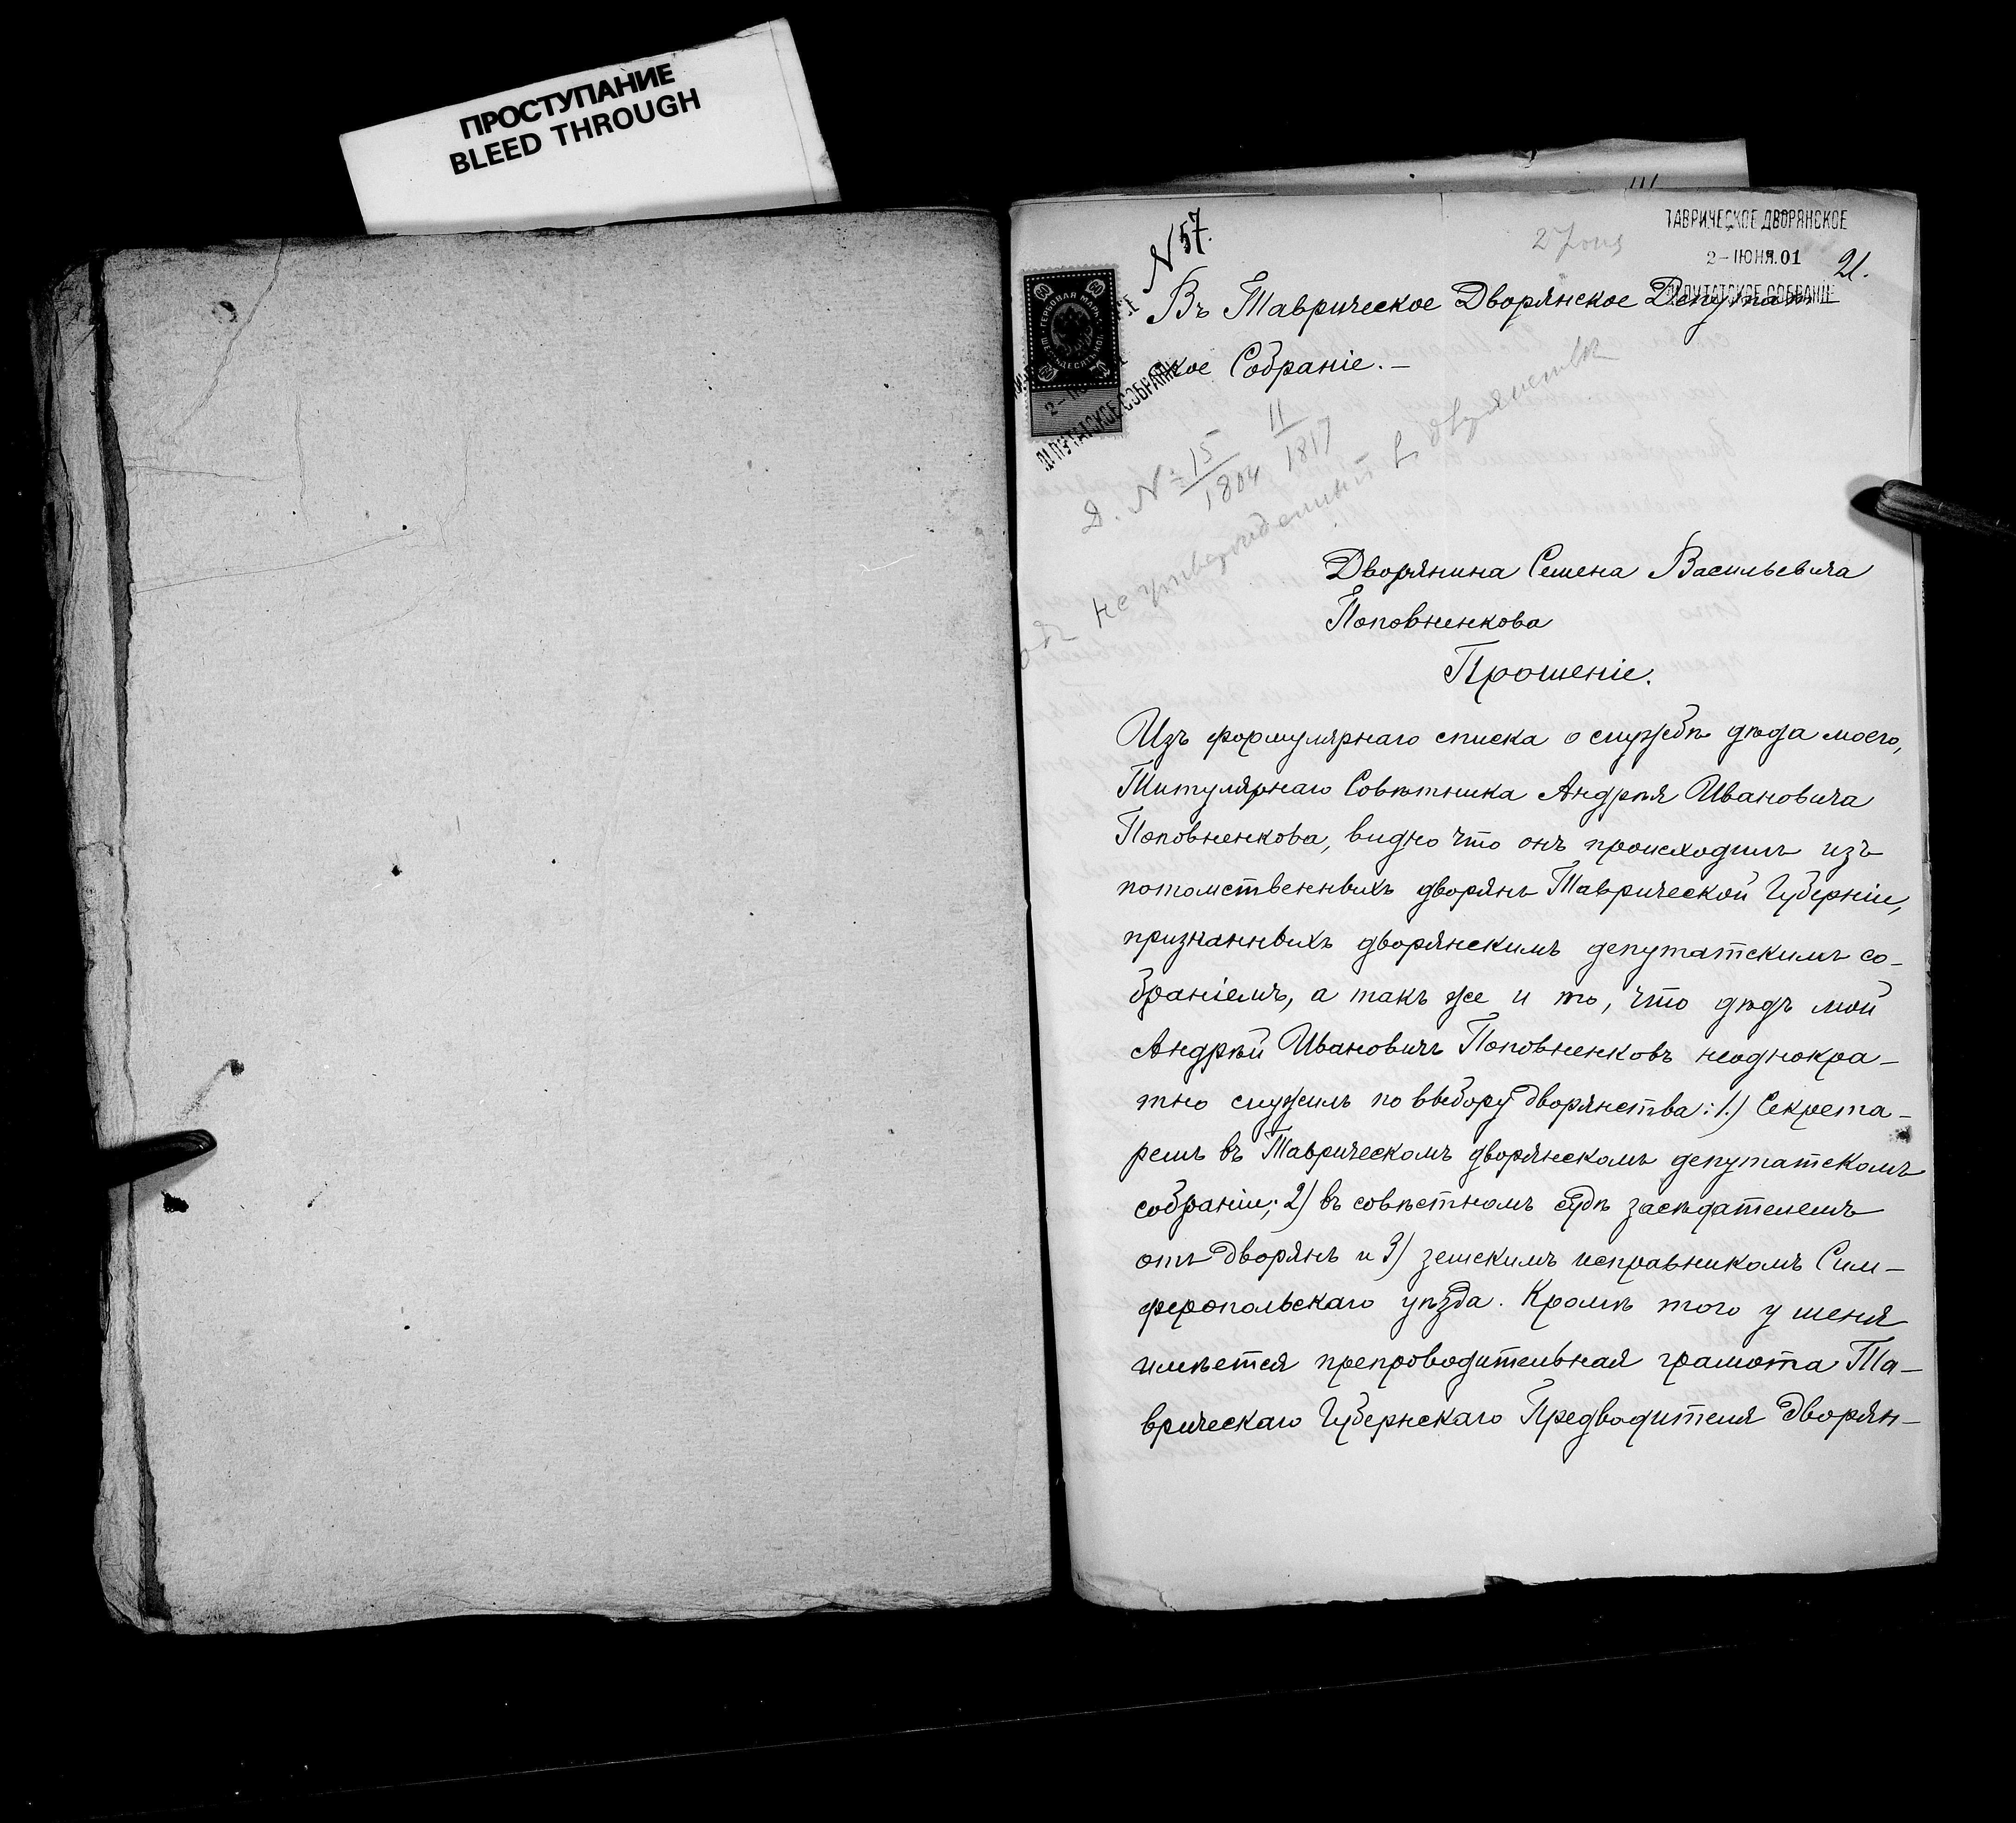 ПРОСТУПАНИЕ
BLEED THROUGH
ТАВРИЧЕСКОЕ ДВОРЯНСКОЕ
2-ІЮНЯ.01
ДЕПУТАТСКОЕ СОБРАНІЕ
21.
N 57.
ГЕРБОВАЯ МАРКА
60 60
Въ Таврическое Дворянское Депутат-
ское Собраніе.-
ДЕПУТАТСКОЕ СОБРАНІЕ
Д. № 15/1804 11/1817
не утвержденный в дворянстве
Дворянина Семена Васильевича
Поповненкова
Прошеніе.
Изъ формулярнаго списка о службѣ дѣда моего,
Титулярнаго Совѣтника Андрѣя Ивановича
Поповненкова, видно что онъ происходилъ изъ
потомственныхъ дворянъ Таврической Губерніи,
признанныхъ дворянскимъ депутатскимъ со-
браніемъ, а такъ же и то, что дѣдъ мой
Андрѣй Ивановичъ Поповненковъ неоднокра-
тно служилъ по выбору дворянства: 1.) Секрета-
ремъ въ Таврическомъ дворянскомъ депутатскомъ
собраніи; 2) въ совѣстномъ судѣ засѣдателемъ
отъ дворянъ и 3) земскимъ исправникомъ Сим-
феропольскаго уѣзда. Кромѣ того у меня
имѣется препроводительная грамота Та-
врическаго Губернскаго Предводителя Дворян-